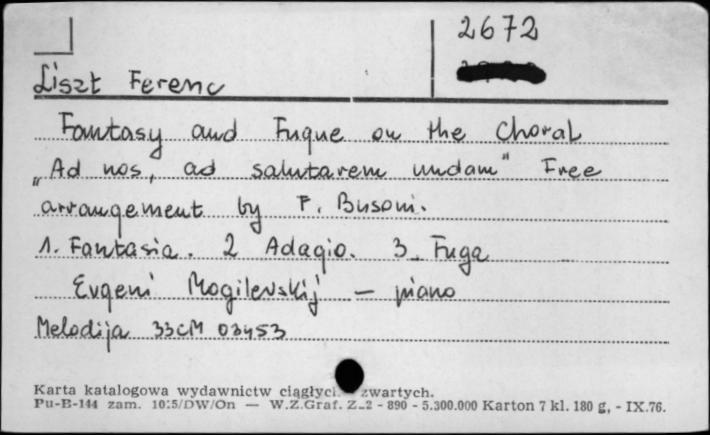 2672
Liszt Ferenc
Fantasy and Fuque on the Choral
„Ad nos, ad salutarem undam" Free
arrangement by F. Busoni.
1. Fantasia. 2 Adagio. 3. Fuga
Evgeni Mogilevskij — piano
Melodija 33CM 03453
Karta katalogowa wydawnictw zwartych.
Pu-B-144 zam. /DW/On — W.Z.Graf. - 890 - 5.300.000 Karton 7 kl. 180 g, - IX.76.